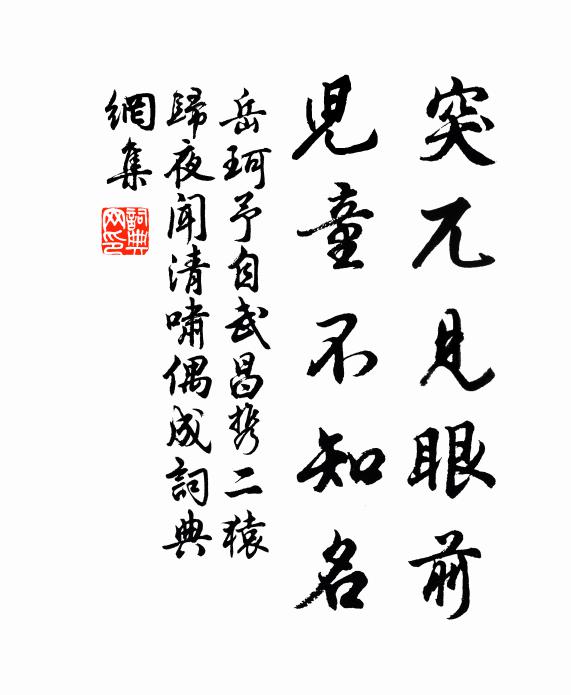 突兀見眼前
兒童不知名
岳珂予自武昌攜二猿
歸夜聞清嘯偶成詞典
網集
詞典
网印